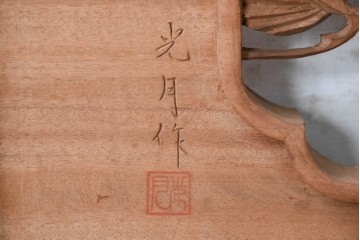 光月作